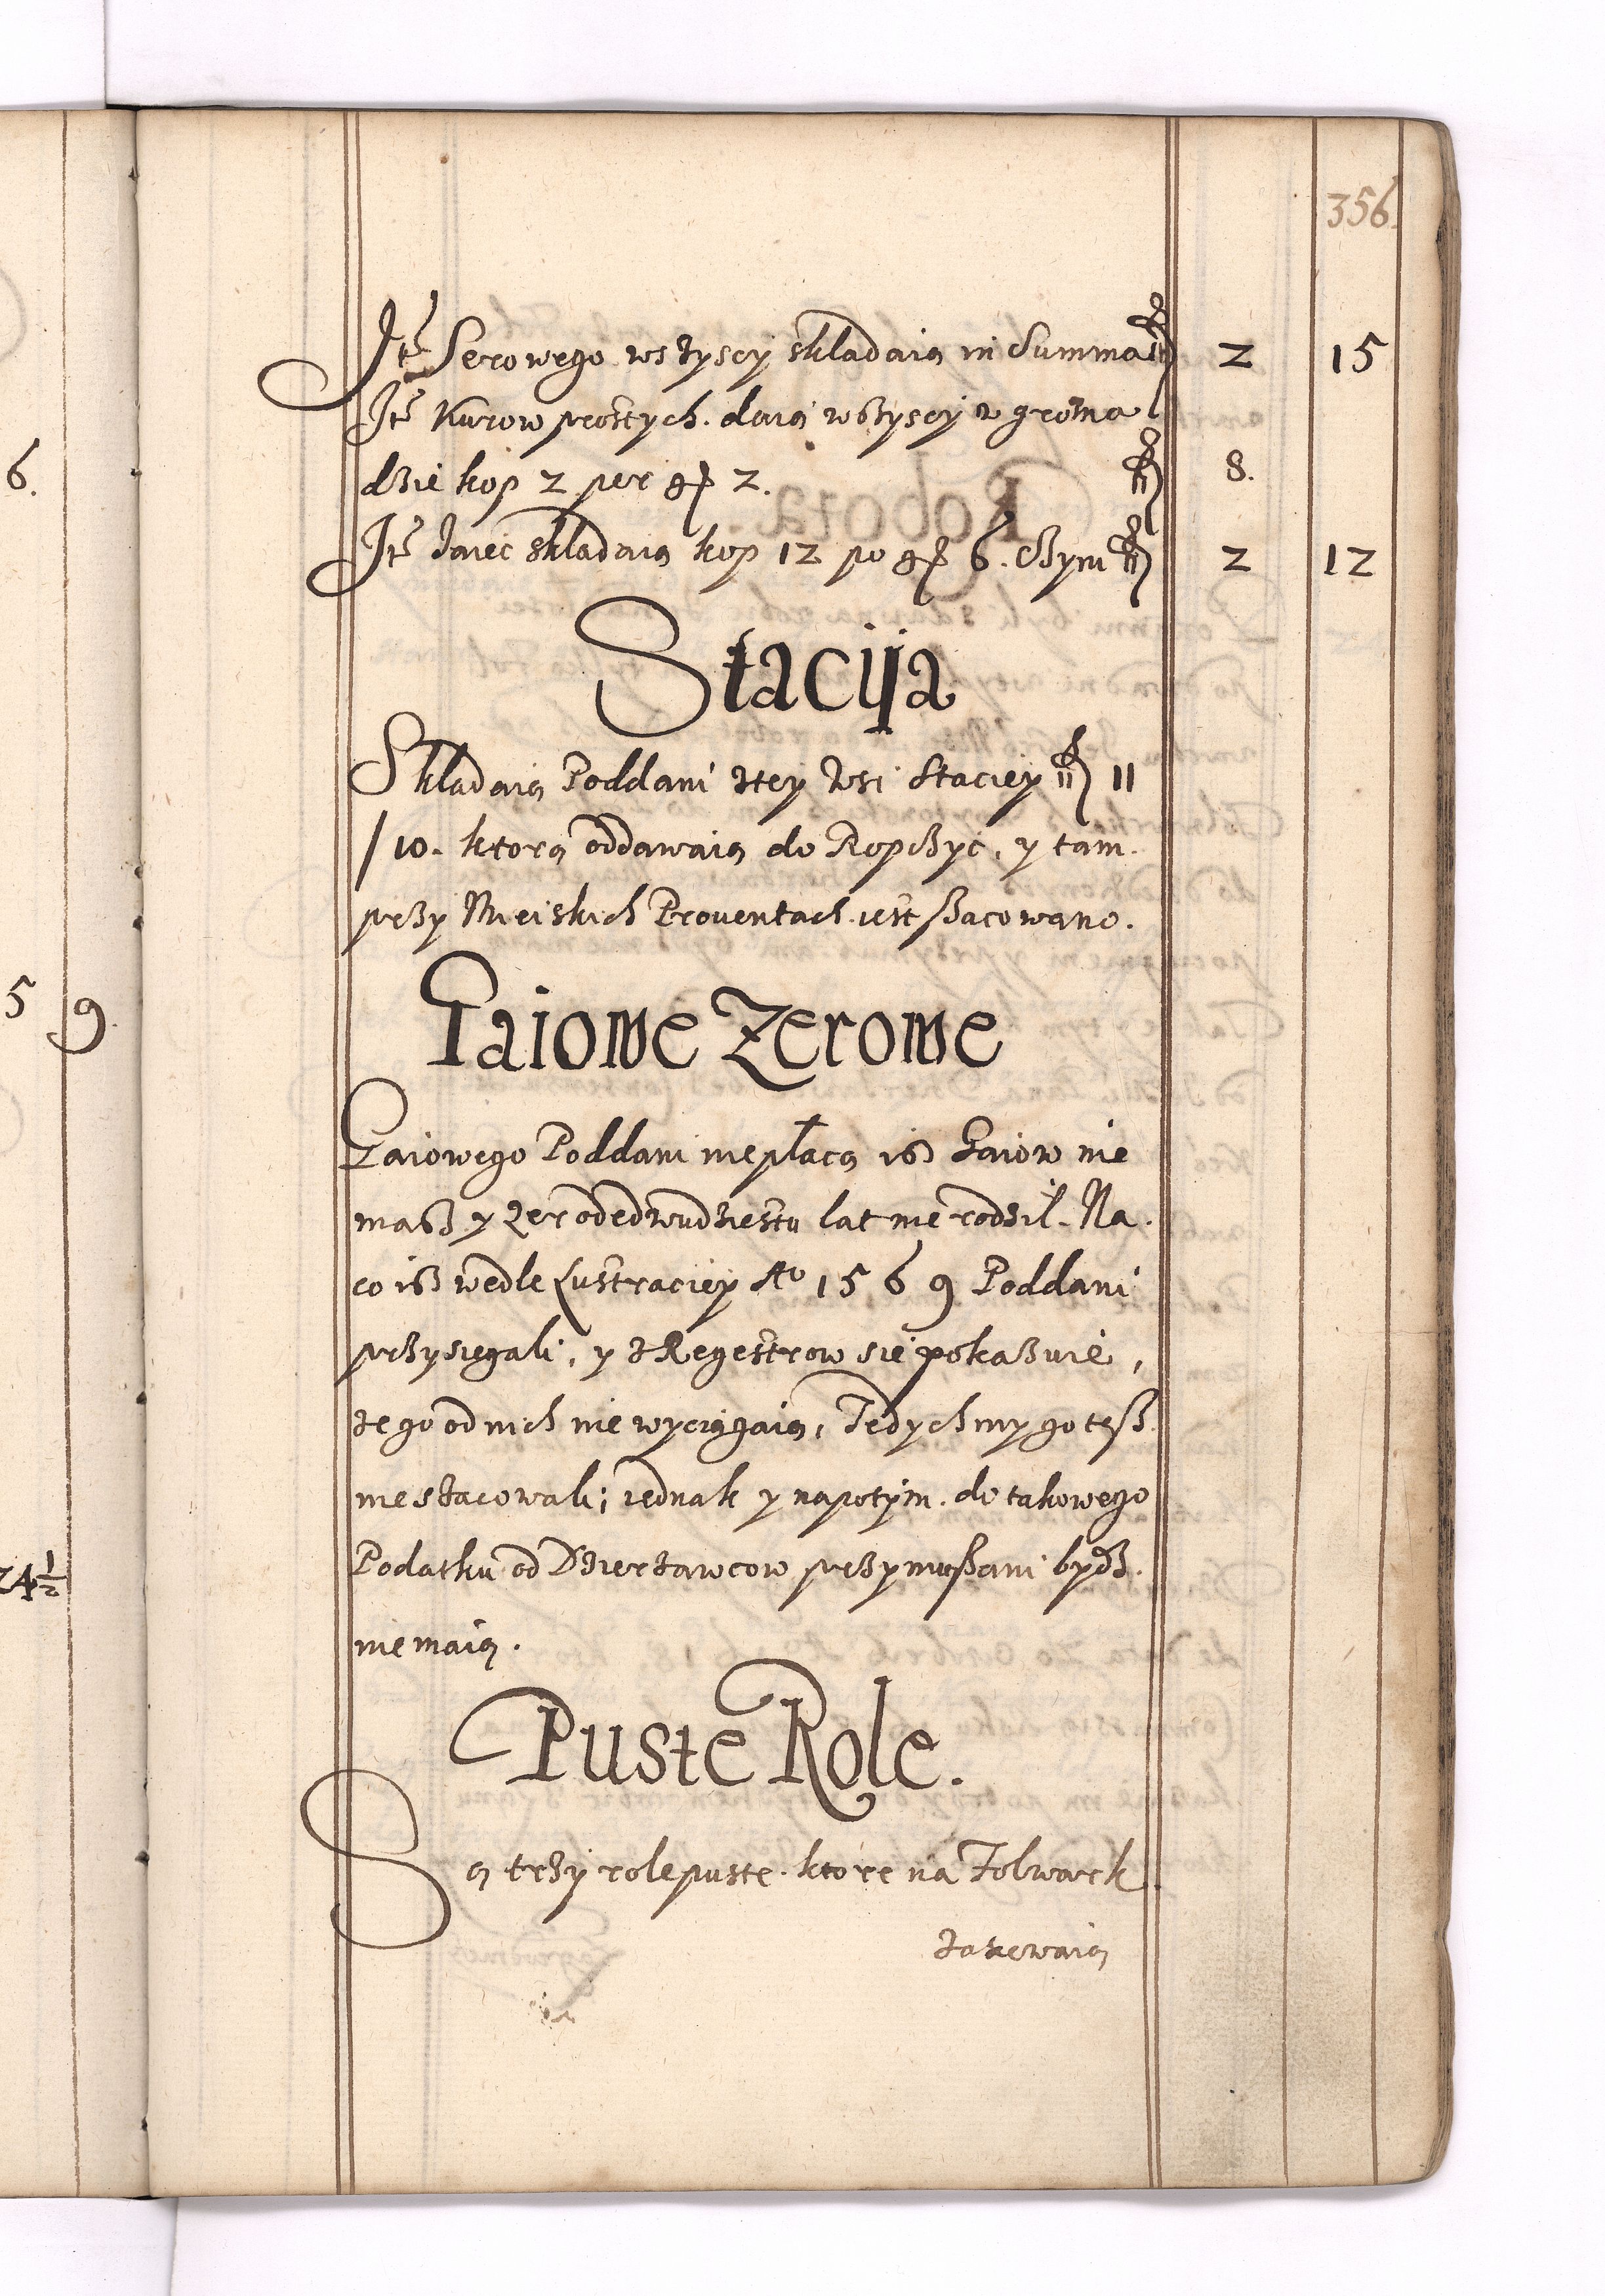 356.
Ite Serowego wszyscy składaią in Summa fl 2 15
Ite Kurow prostych. daią wszyscy w groma
dzie kop 2 per gr 2. fl 8.
Ite Jaiec składaią kop 12 po gr 6. czyni fl 2 12
Stacija
Składaią Poddani ztey Wsi Staciey fl 11
/10. ktorą oddawaią do Ropczyc, y tam.
przy Mieiskich Proventach iest szacowano.
Gaiowe Zerowe
Gaiowego Poddani niepłacą isz Gaiow nie
masz y Zer odedwudziestu lat nie rodzil. Na.
co isz wedle Lustraciey Ao 1569 Poddani
przysięgali, y z Regestrow sie pokazuie,
zego od nich nie wyciągaią, Tedychmy go tesz
nieszacowali; iednak y napotym. do takowego
Podatku od Dzierzawcow przymuszani bydz.
niemaią.
Puste Role.
Są trzy role puste. ktore na Folwark.
zasiewaią
6.
5 9.
24 1/2